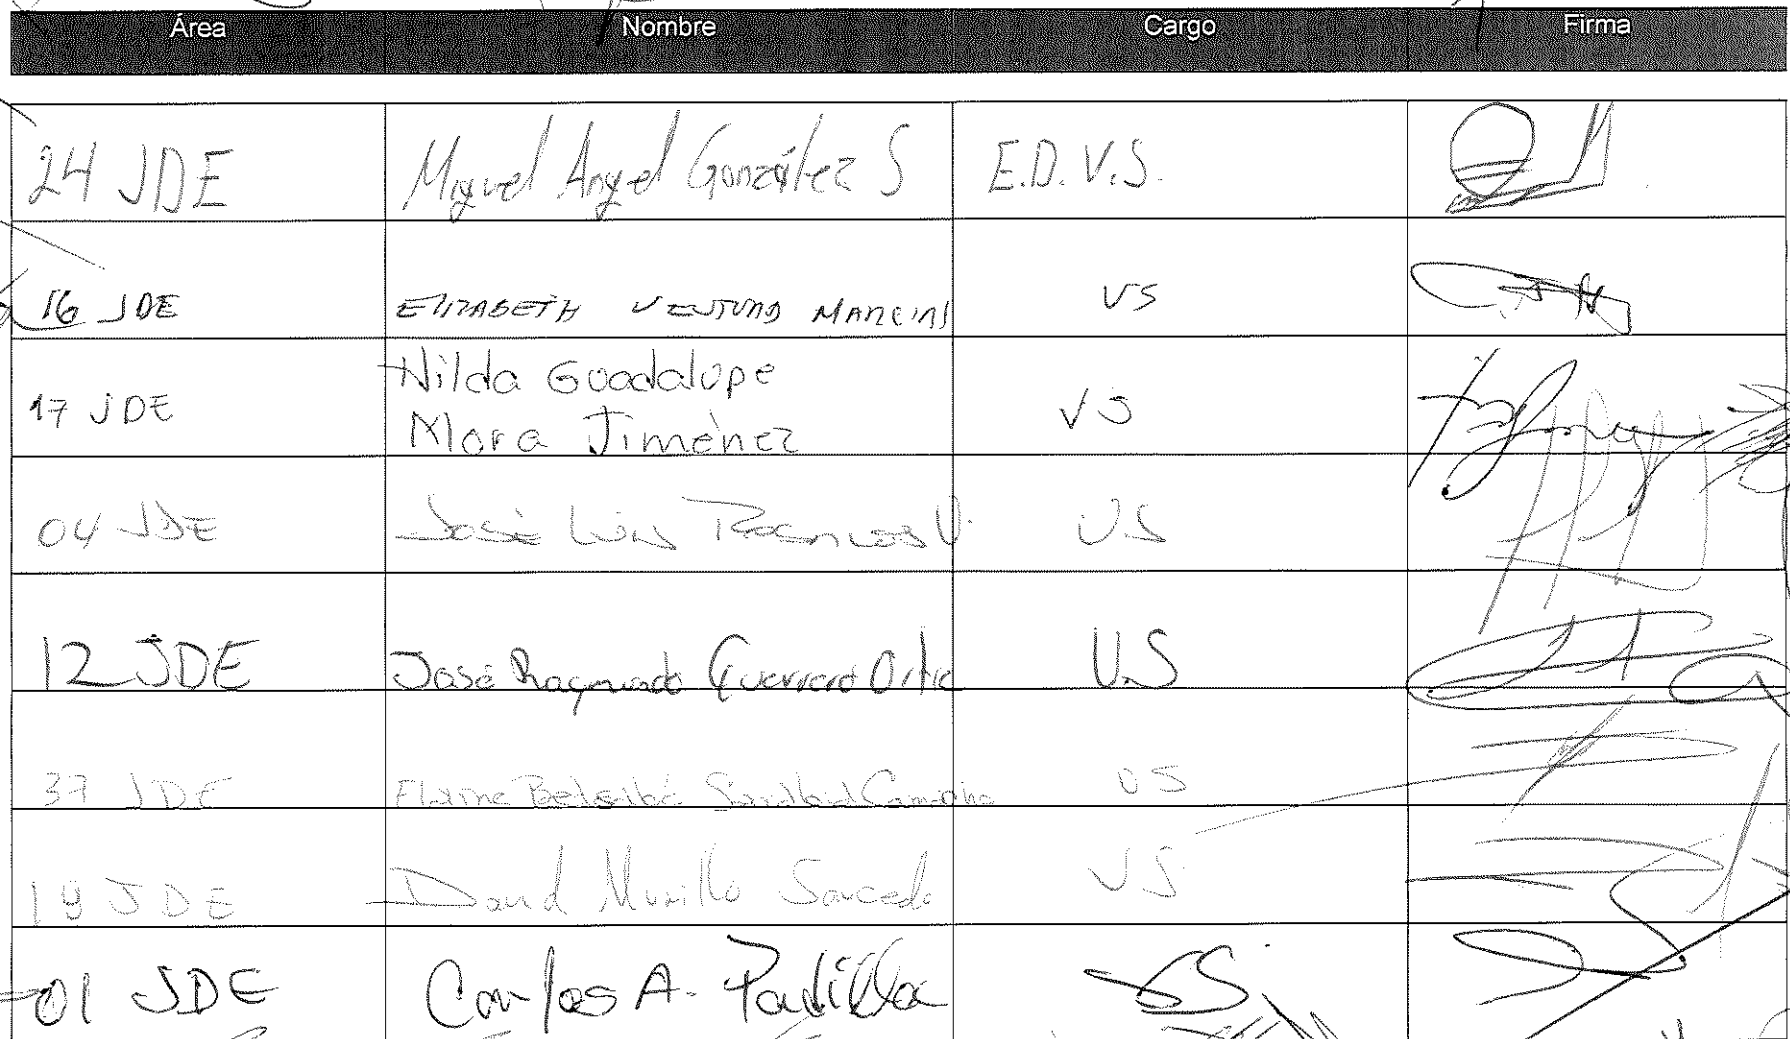 Área Nombre Cargo Firma
24 JDE Miguel Angel González S E.D.V.S.
16 JDE ELIZABETH VENTURA VS
17 JDE Nilda Guadalupe
Mora Jiménez VS
04 JDE José Luis V. VS
12 JDE José Raymundo Guerrero Ortiz V.S
37 JDE Sandoval Camacho VS
19 JDE David Murillo Saucedo VS
01 JDE Carlos A. Padilla